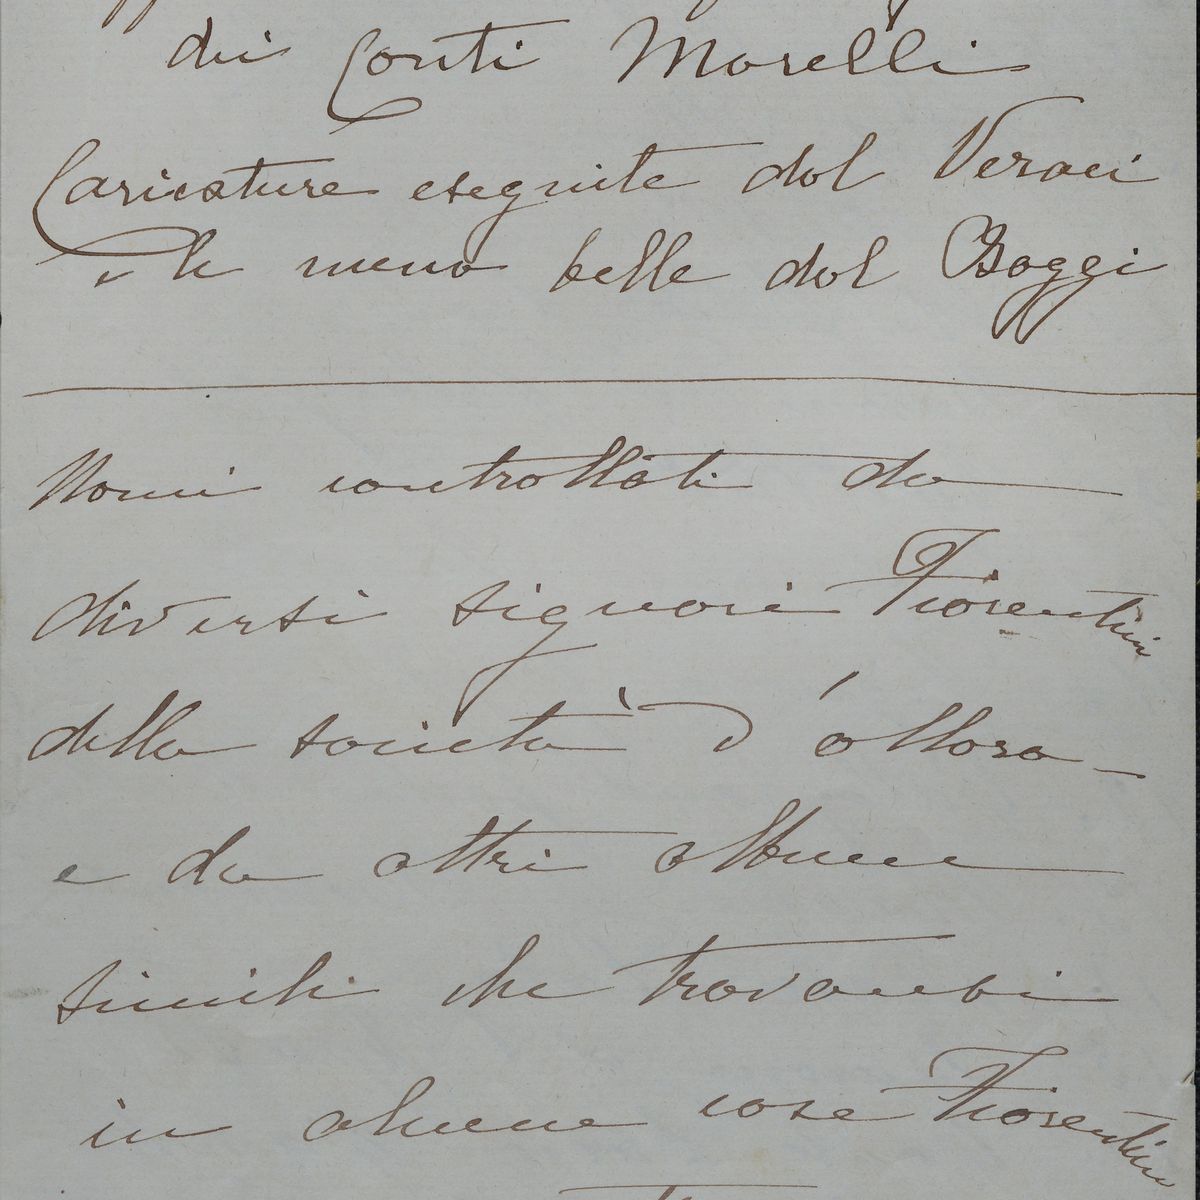 dei Conti Morelli
Caricature eseguite dal Veraci
e le meno belle dal Baggi
Nomi controllati da
diversi signori Fiorentini
della società d'allora
e da altri album
simili che trovansi
in alcune case Fiorentine